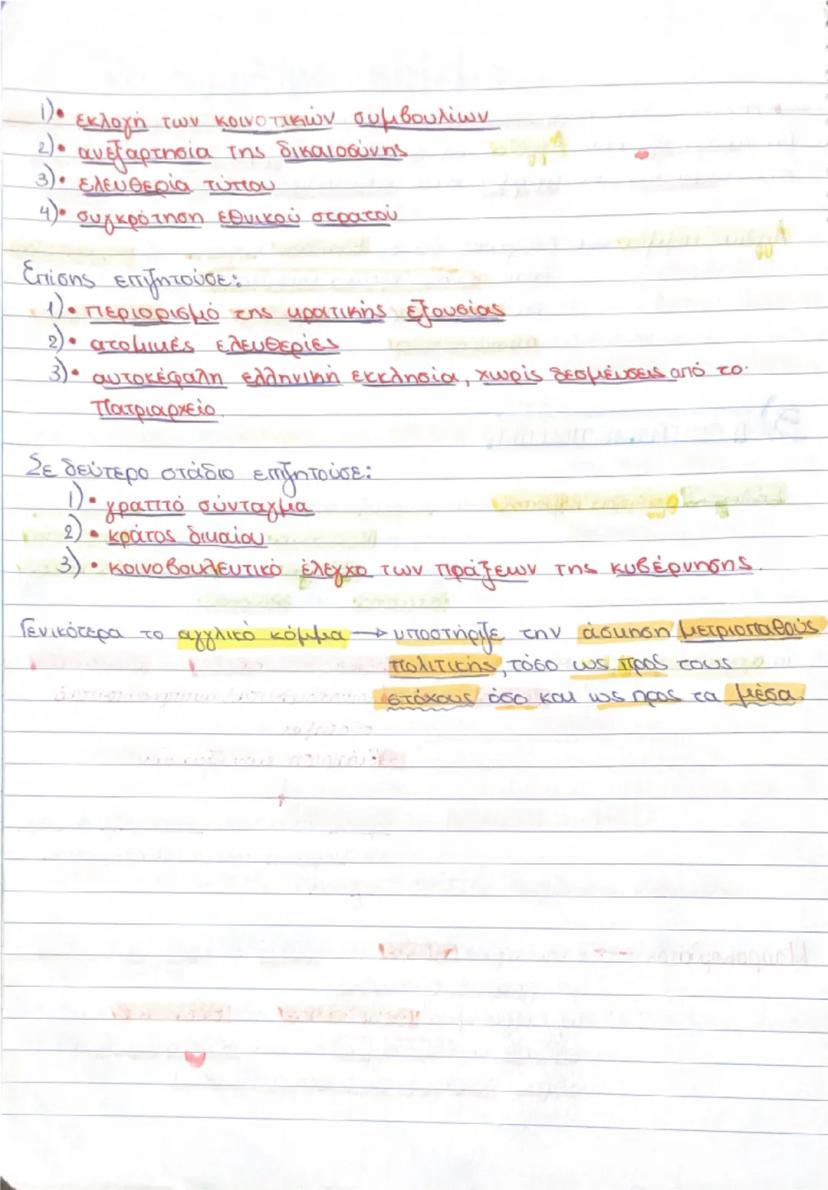 1)• εκλογή των κοινοτικών συμβουλίων
2)• ανεξαρτησία της δικαιοσύνης
3)• ελευθερία τύπου
4)• συγκρότηση εθνικού στρατού
Επίσης επιζητούσε:
1)• περιορισμό της κρατικής εξουσίας
2)• ατομικές ελευθερίες
3)• αυτοκέφαλη ελληνική εκκλησία, χωρίς δεσμεύσεις από το
Πατριαρχείο.
Σε δεύτερο στάδιο επιζητούσε:
1)• γραπτό σύνταγμα
2)• κράτος δικαίου
3)• κοινοβουλευτικό έλεγχο των πράξεων της κυβέρνησης.
Γενικότερα το αγγλικό κόμμα → υποστήριζε την άσκηση μετριοπαθούς
πολιτικής, τόσο ως προς τους
στόχους όσο και ως προς τα μέσα.